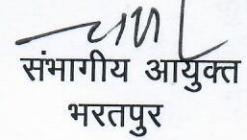 संभागीय आयुक्त
भरतपुर